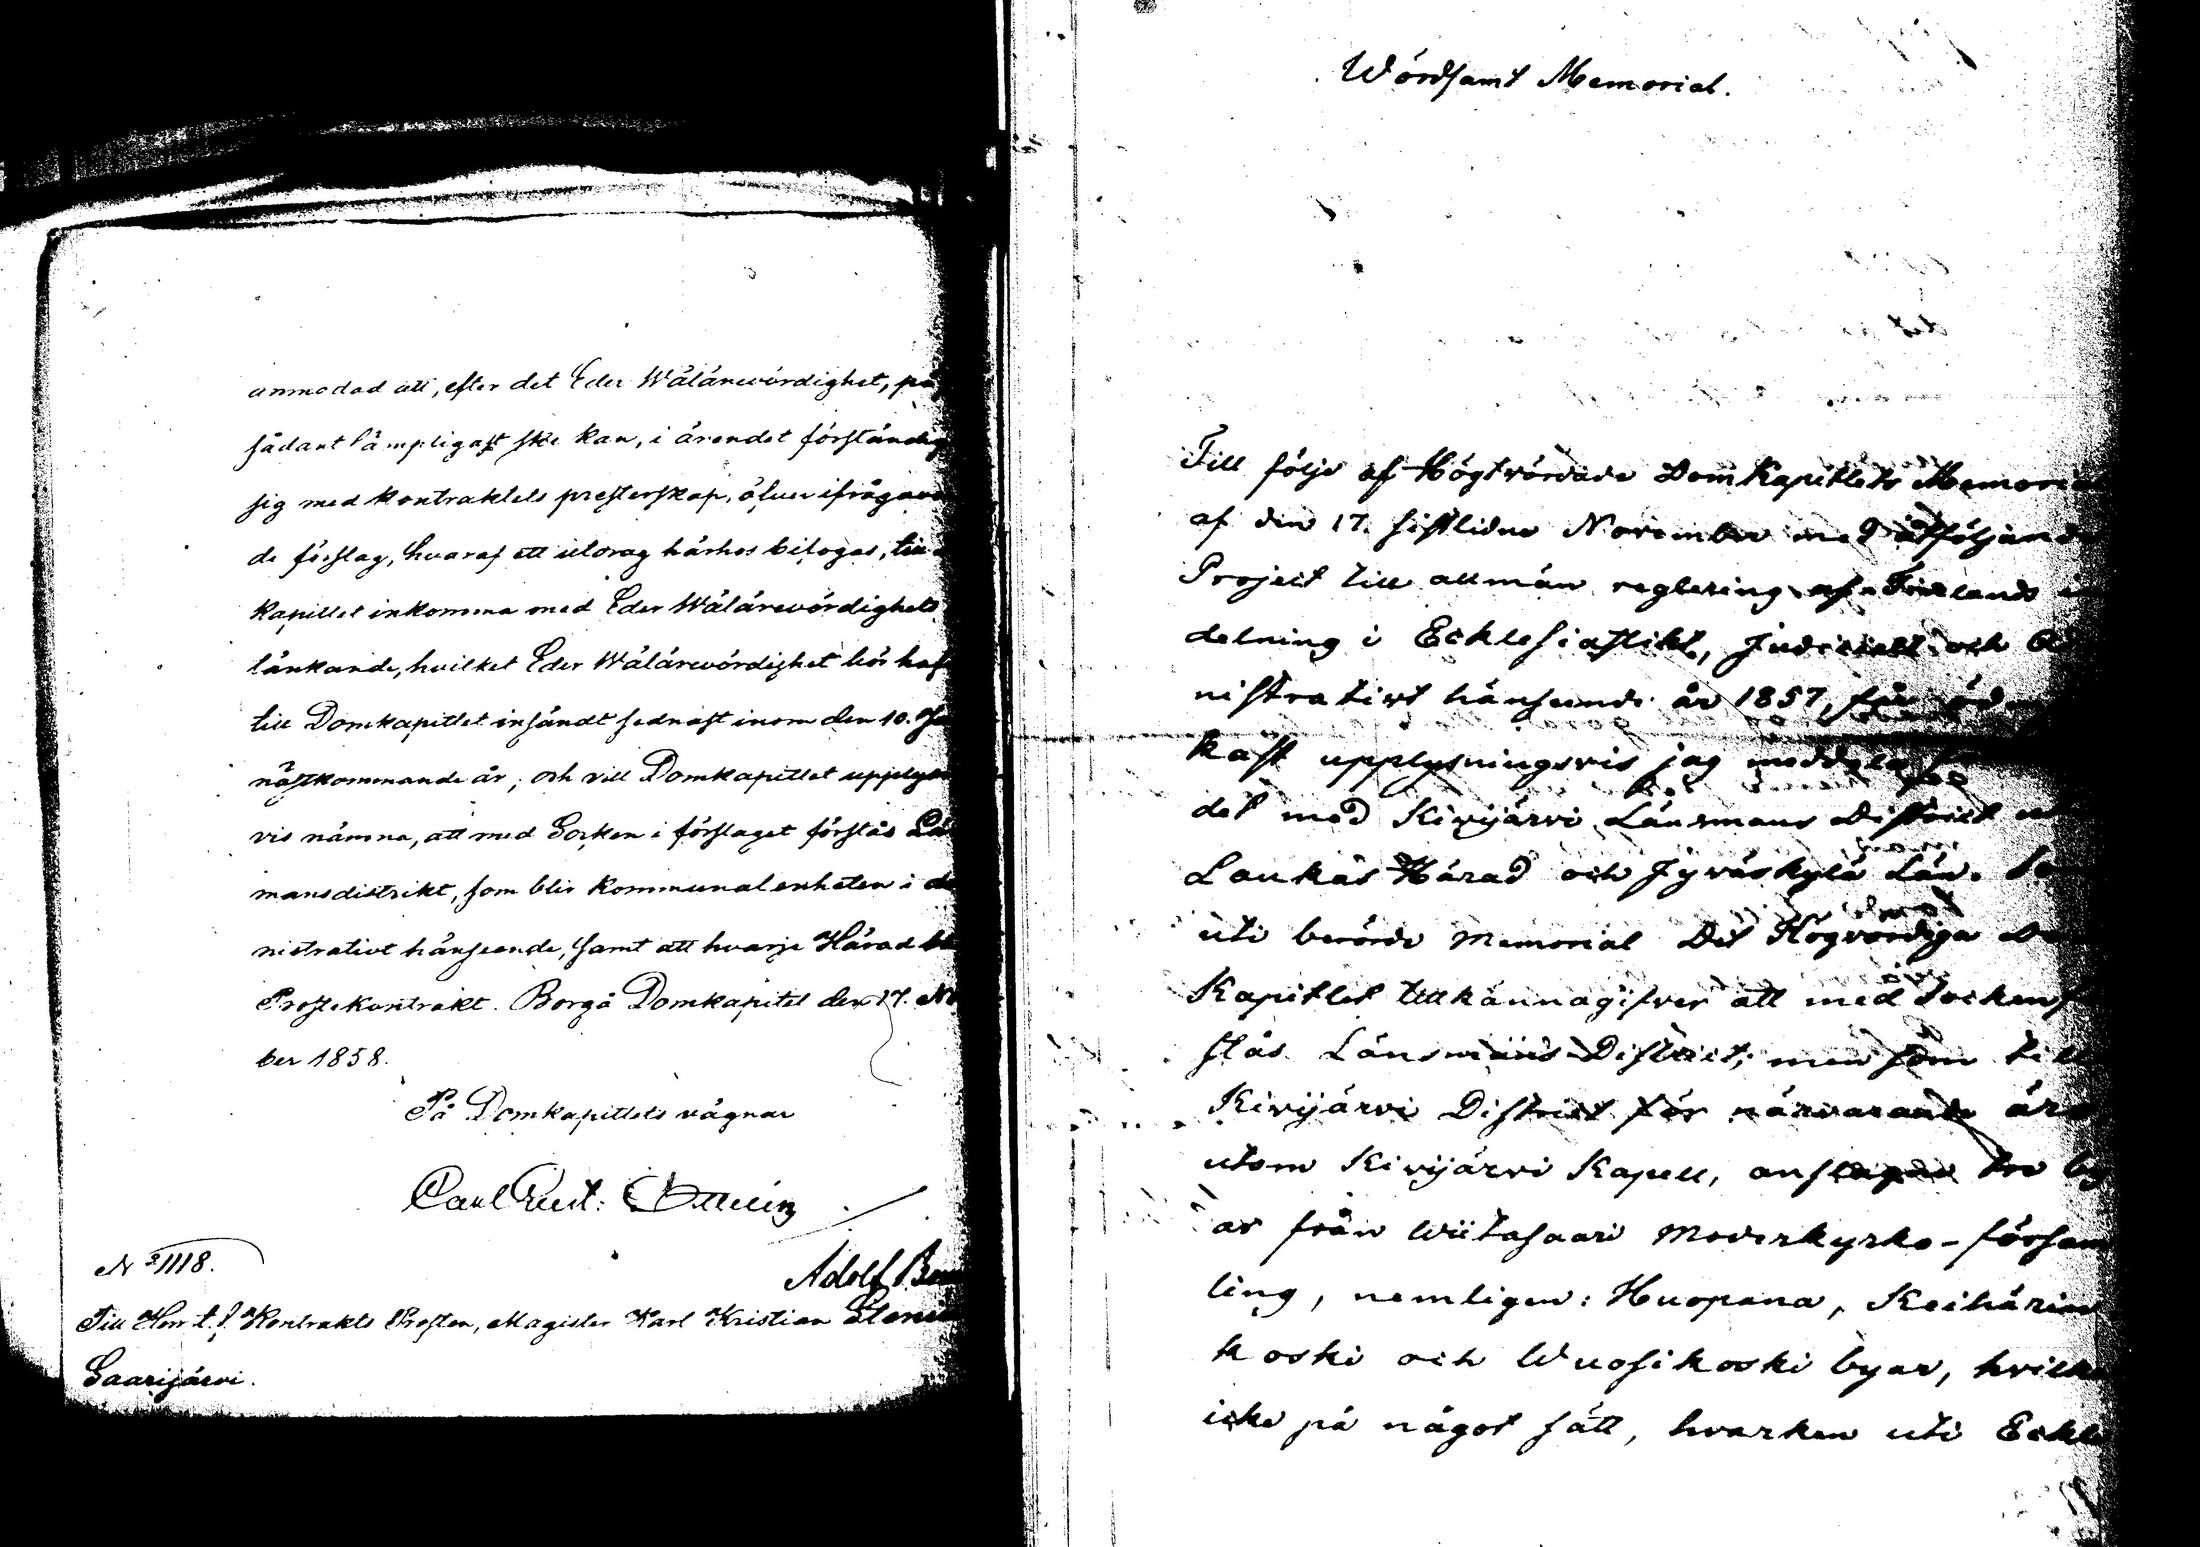 anmodad att, efter det Eder Wälärewördighet, på
sådant lämpligast ske kan, i ärendet förständig
sig med kontraktets presterskap, öfver ifrågava
de förslag, hvaraf ett utdrag härhos bifogas, till
kapitlet inkomma med Eder Wälärewördighets
länkande, hvilket Eder Wälärewördighet bör haf
till Domkapitlet insändt sednast inom den 10. Ja
nästkommande år; och vill Domkapitlet upplysn
vis nämna, att med Socken i förslaget förstås Lä
mansdistrikt, som blir kommunalenheten i ad
nistrativt hänseende, samt att hvarje Härad bl
Prostekontrakt. Borgå Domkapitel den 17. No
ber 1858.
På Domkapitlets vägnar
Carl Gust. Ottelin
Adolf
No 1118.
Till Herr t.f. Kontrakts Prosten, Magister Karl Kristian
Saarijärvi.
Wördsamt Memorial.
Till följe af Högtvördade DomKapitlets Memorial
af den 17. sistlidne November med åtföljande
Project till allmän reglering af Finlands in
delning i Ecklesiastikt, Judicielt och Ad
nistrativt hänseende år 1857, får öd
kast upplysningsvis jag meddela
det med Kivijärvi Länsmans District
Laukas Härad och Jyväskylä Län. Som
uti berörde Memorial Det Högvördiga Do
Kapitlet tillkännagifver att med Socken f
stås Länsmans District; men som till
Kivijärvi District för närvarande äro
utom Kivijärvi Kapell, anslagne tre by
ar från Wiitasaari Moderkyrko-försam
ling, nemligen: Huopana, Keihärin
koski och Wuosikoski byar, hvilka
icke på något sätt, hvarken uti Eckle